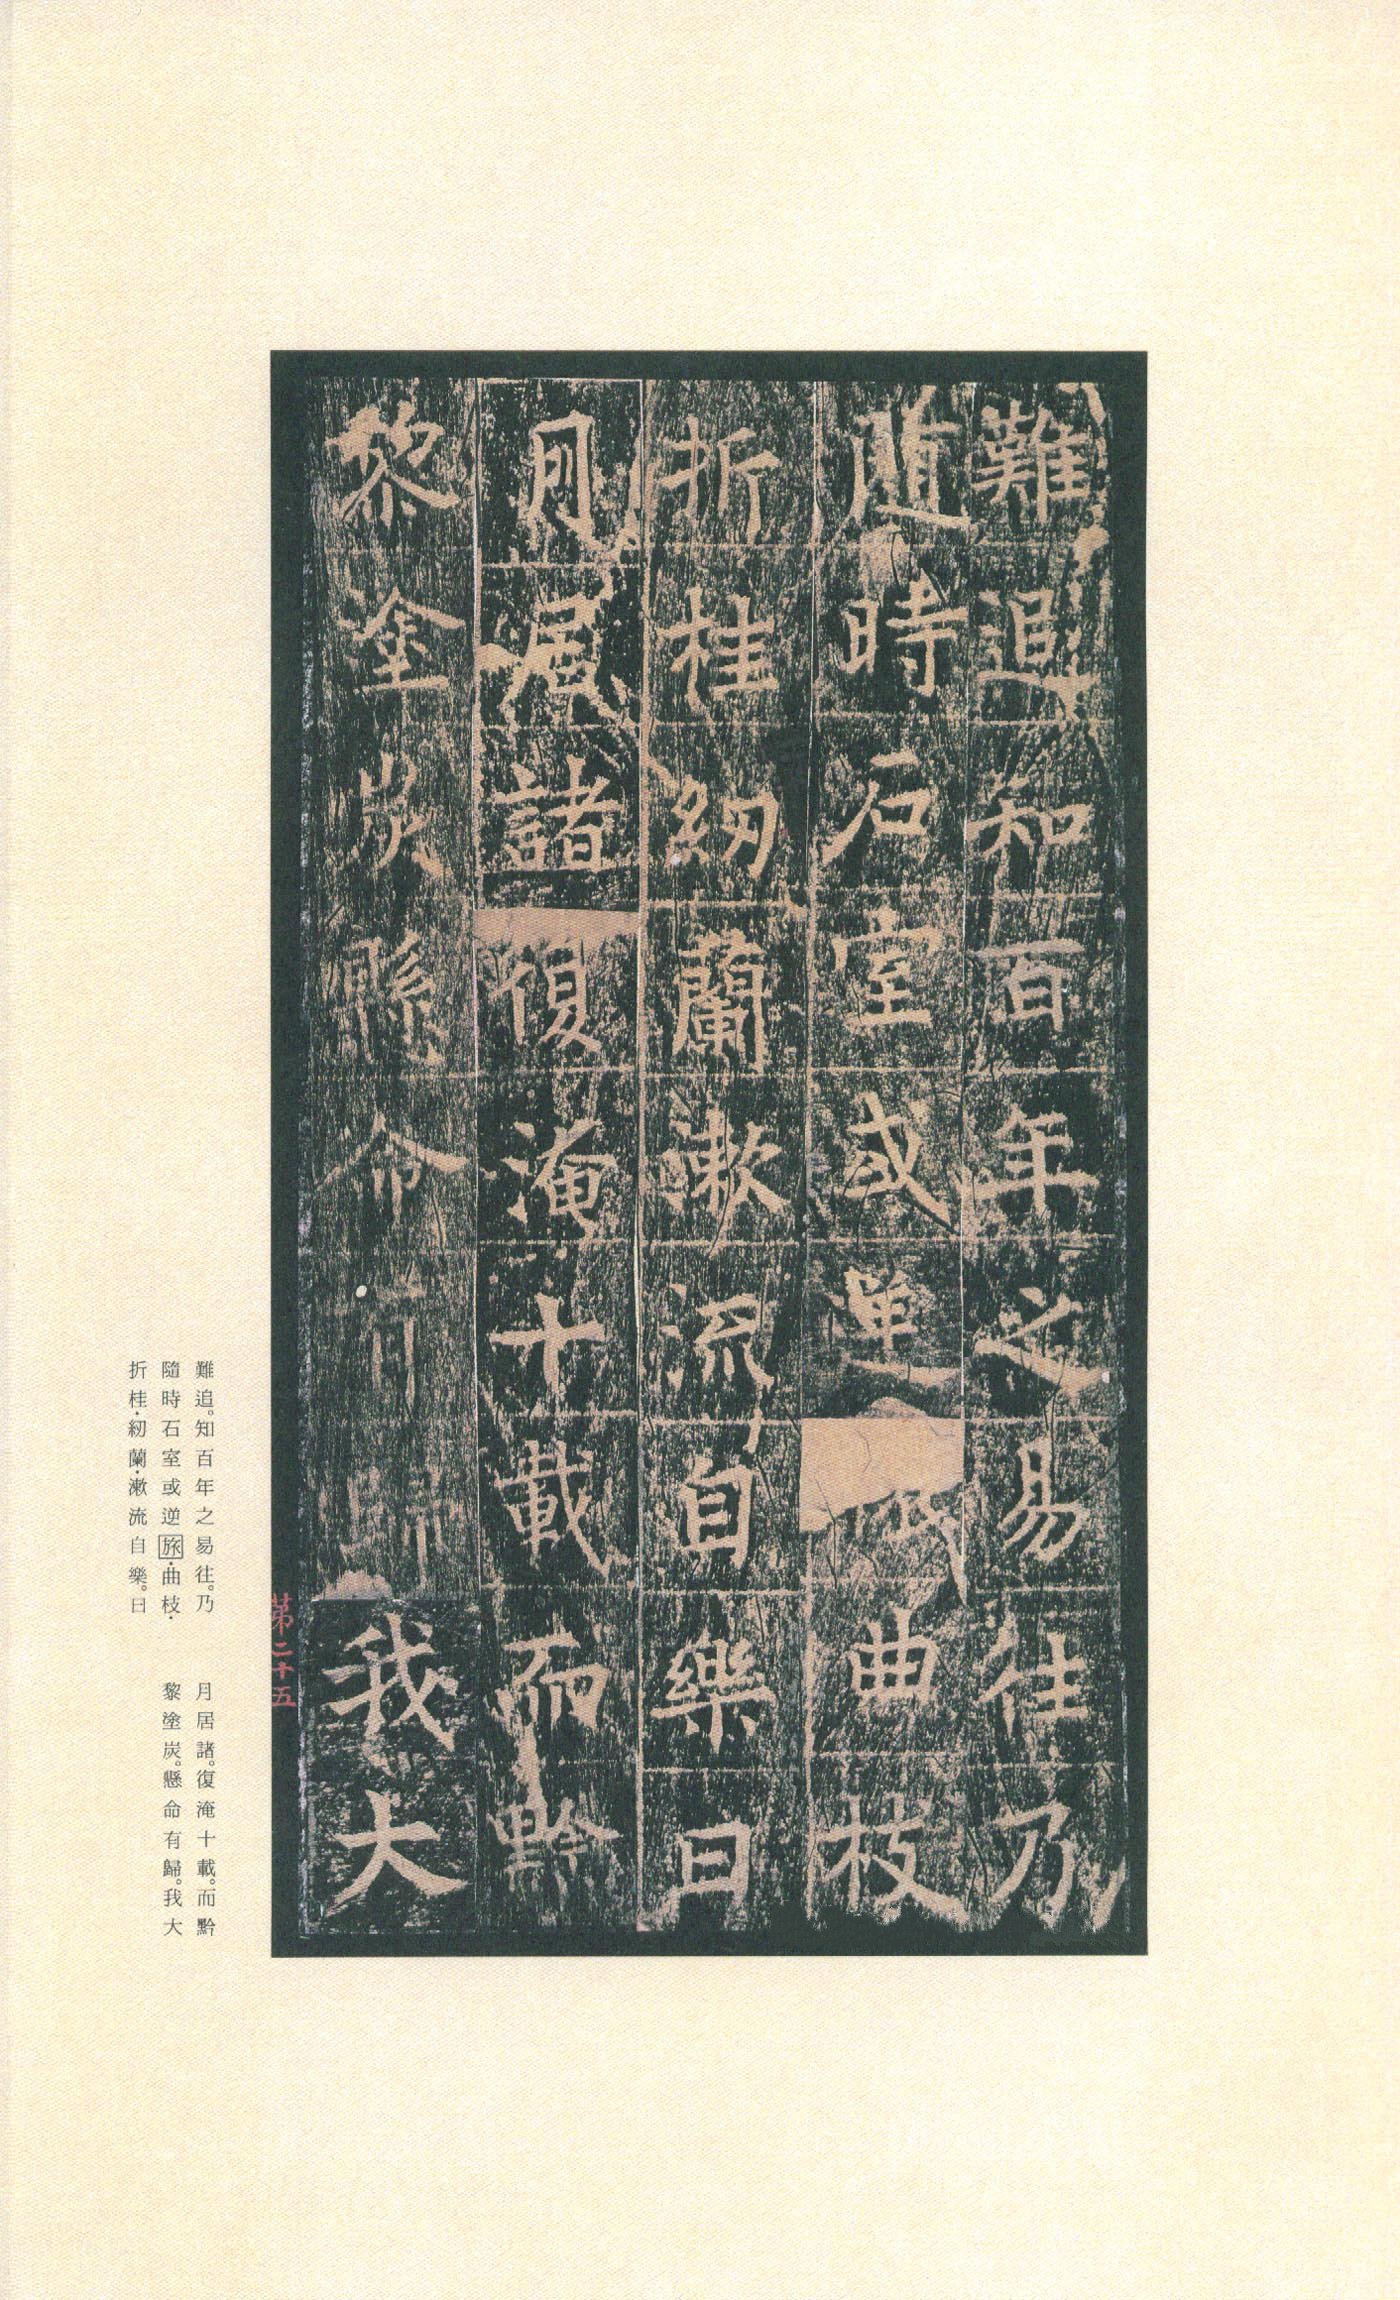 難追知百年之易往乃
隨時石室或逆曲枝
折桂紉蘭漱流自樂日
月居諸復淹十載而黔
黎塗炭懸命有歸我大
第二十五
難追。知百年之易往。乃
隨時石室或逆旅·曲枝·
折桂·紉蘭·漱流自樂。曰
月居諸。復淹十載。而黔
黎塗炭。懸命有歸。我大